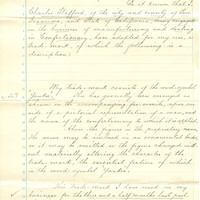 Be it known that I,
Charles Stafford, of the city and county of San
Francisco, and State of California, am engaged
in the business of manufacturing and dealing
in Confectionery, have adopted for my use, a
trade mark, of which the following is a
description:
My trade-mark consists of the word-symbol
"Yankee", this has generally been arranged as
shown in the accompanying fac-simile, upon one
side of a pictorial representation of a man, and
the name of the confectionery to which it is applied
Above the figure is the proprietary name,
the same may be enclosed in an ornamental border
or it may be omitted or the figure changed with-
out materially altering the character of the
trade mark, the essential feature of which
is the word symbol "Yankee".
This trade mark I have used in my
business for the three and a half months last past